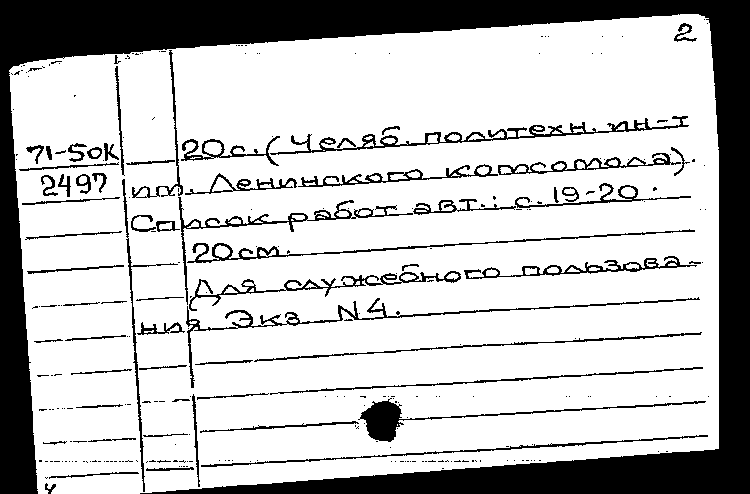 2
71-50к 20с. (Челяб. политехн. ин-т
2497 им. Ленинского комсомола).
Список работ авт.: с. 19-20.
20см.
Для служебного пользова-
ния. Экз. N4.